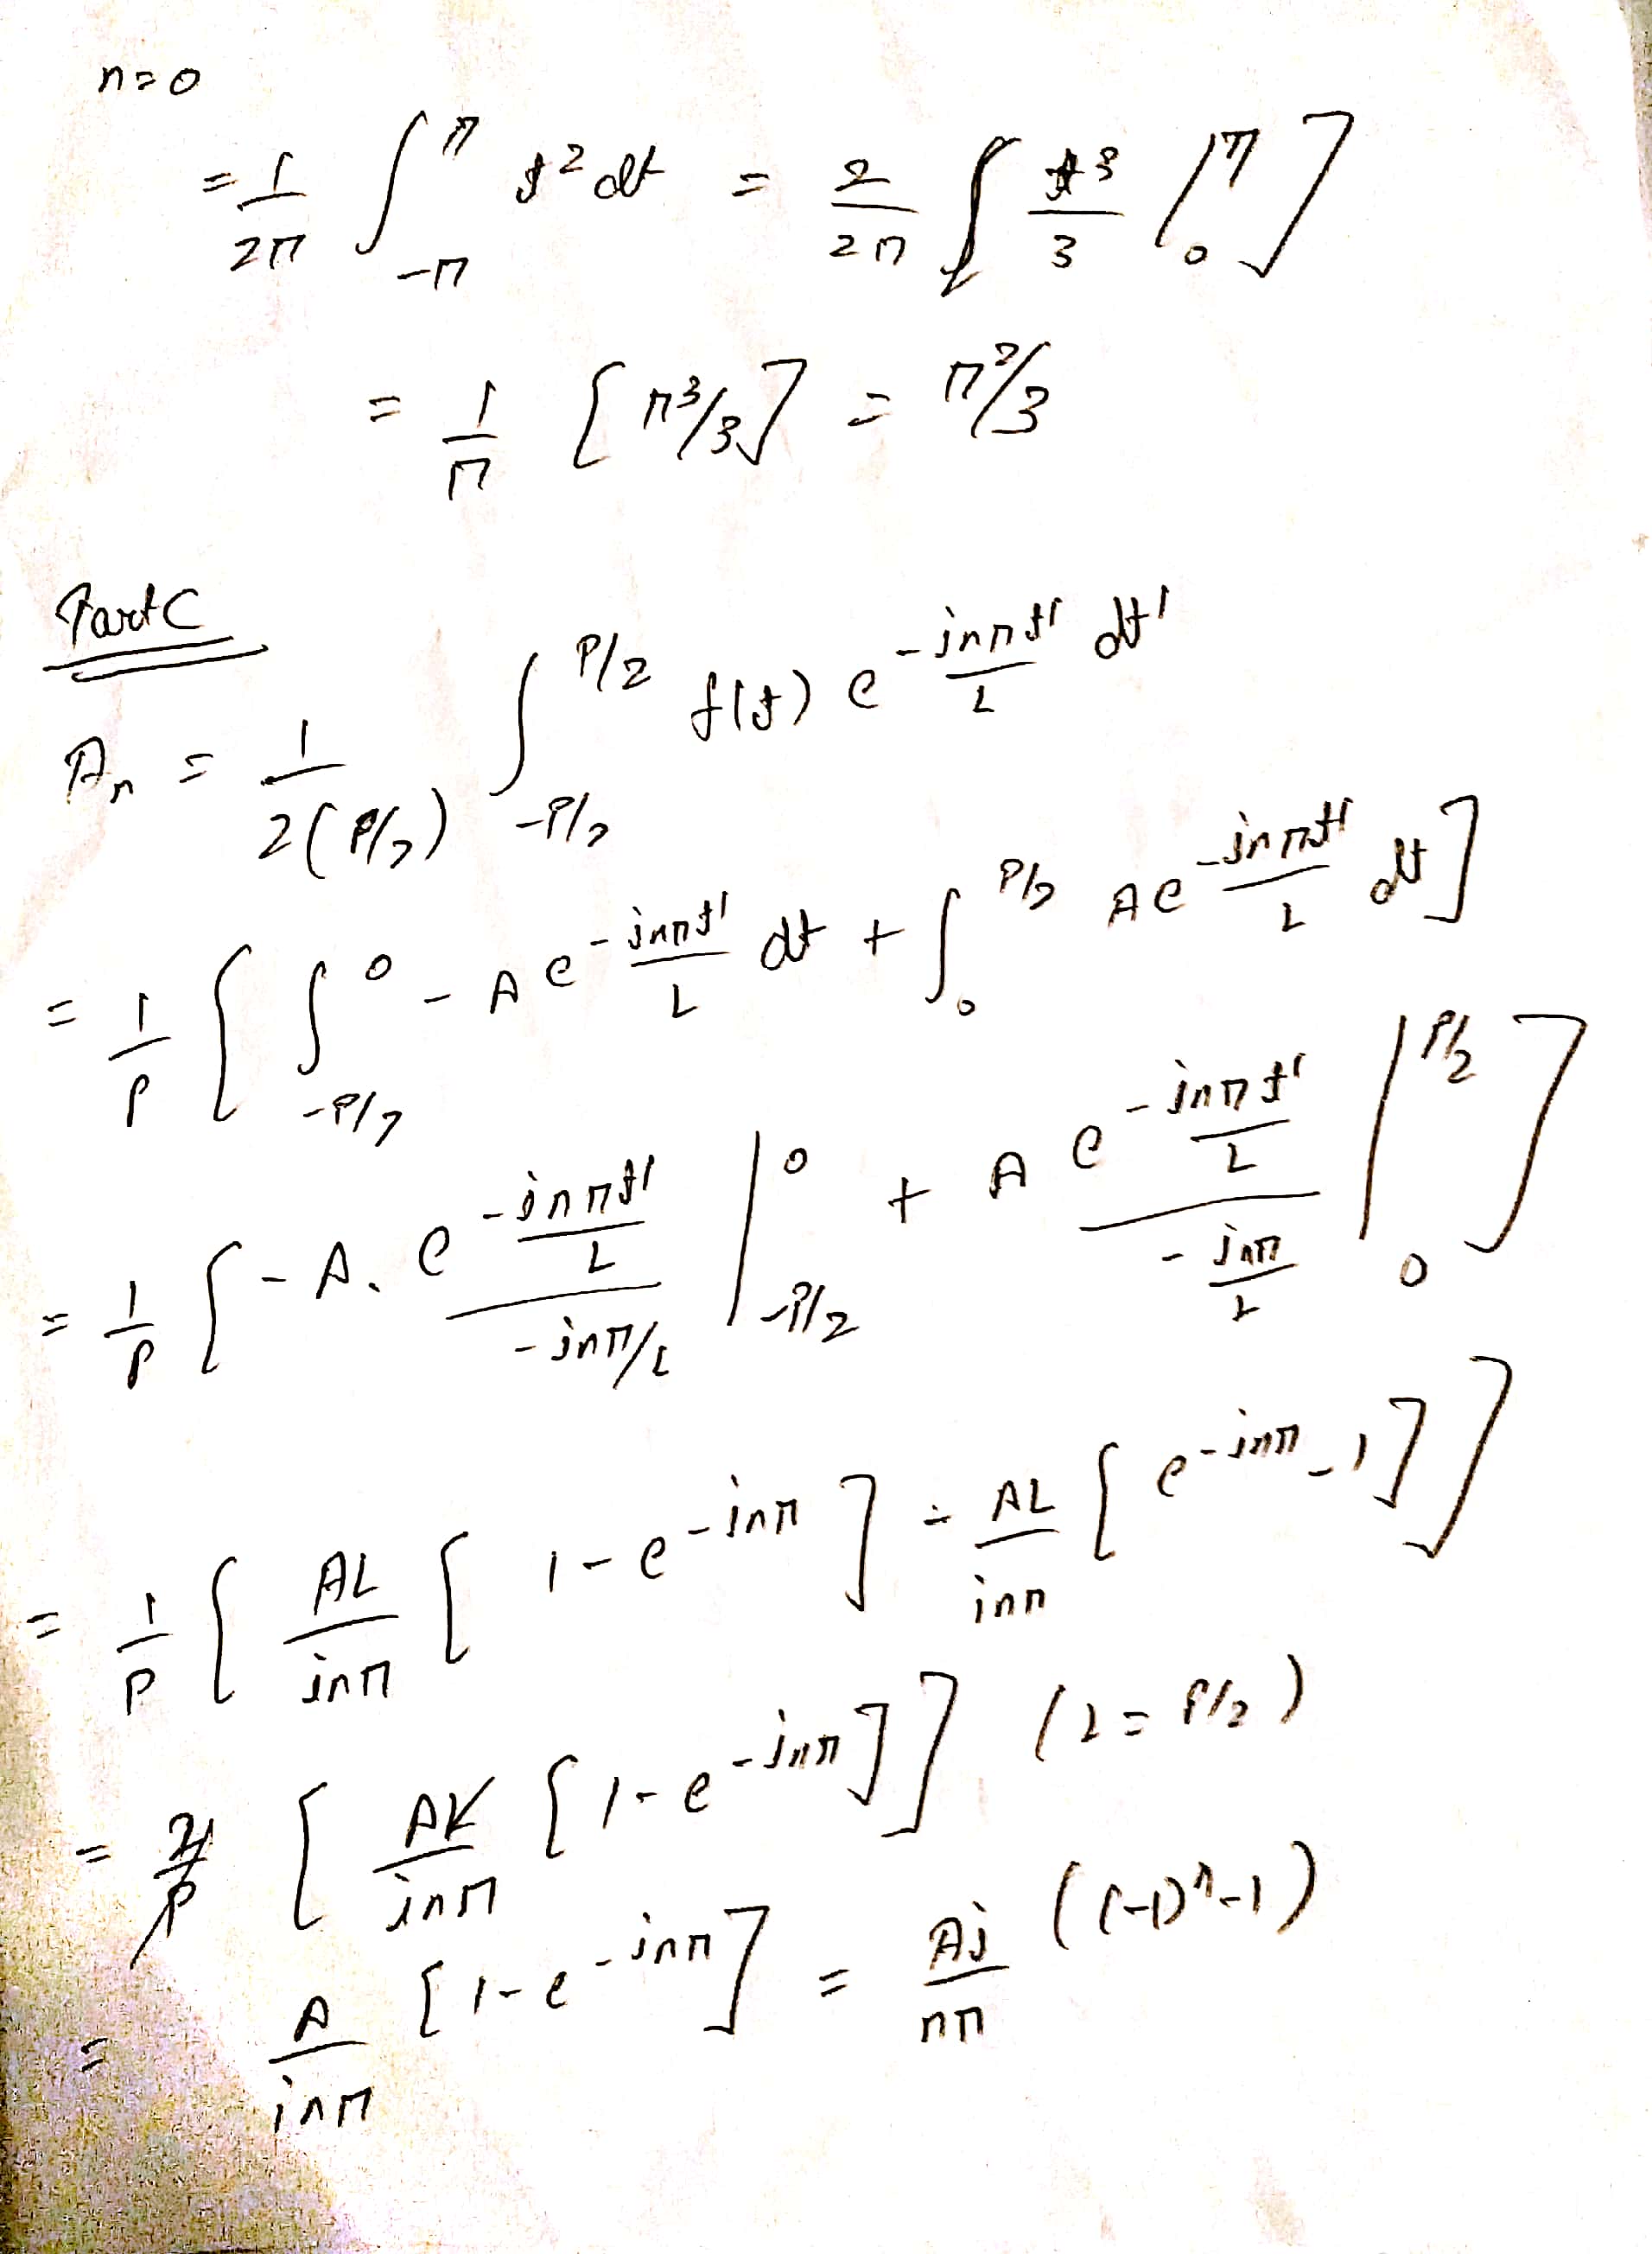 n=0
= 1/2π ∫_{-π}^{π} t² dt = 2/2π [ t³/3 |_0^π ]
= 1/π [ π³/3 ] = π²/3
Part C
A_n = 1/2(P/2) ∫_{-P/2}^{P/2} f(t) e^{-inπt'/L} dt'
= 1/P [ ∫_{-P/2}^0 -A e^{-inπt'/L} dt + ∫_0^{P/2} A e^{-inπt'/L} dt ]
= 1/P [ -A. e^{-inπt'/L}/(-inπ/L) |_{-P/2}^0 + A e^{-inπt'/L}/(-inπ/L) |_0^{P/2} ]
= 1/P [ AL/inπ [ 1-e^{-inπ} ] - AL/inπ [ e^{-inπ} -1 ] ]
= 2/P [ AL/inπ [ 1-e^{-inπ} ] ] (L = P/2)
= A/inπ [ 1-e^{-inπ} ] = Ai/nπ ((-1)^n -1)